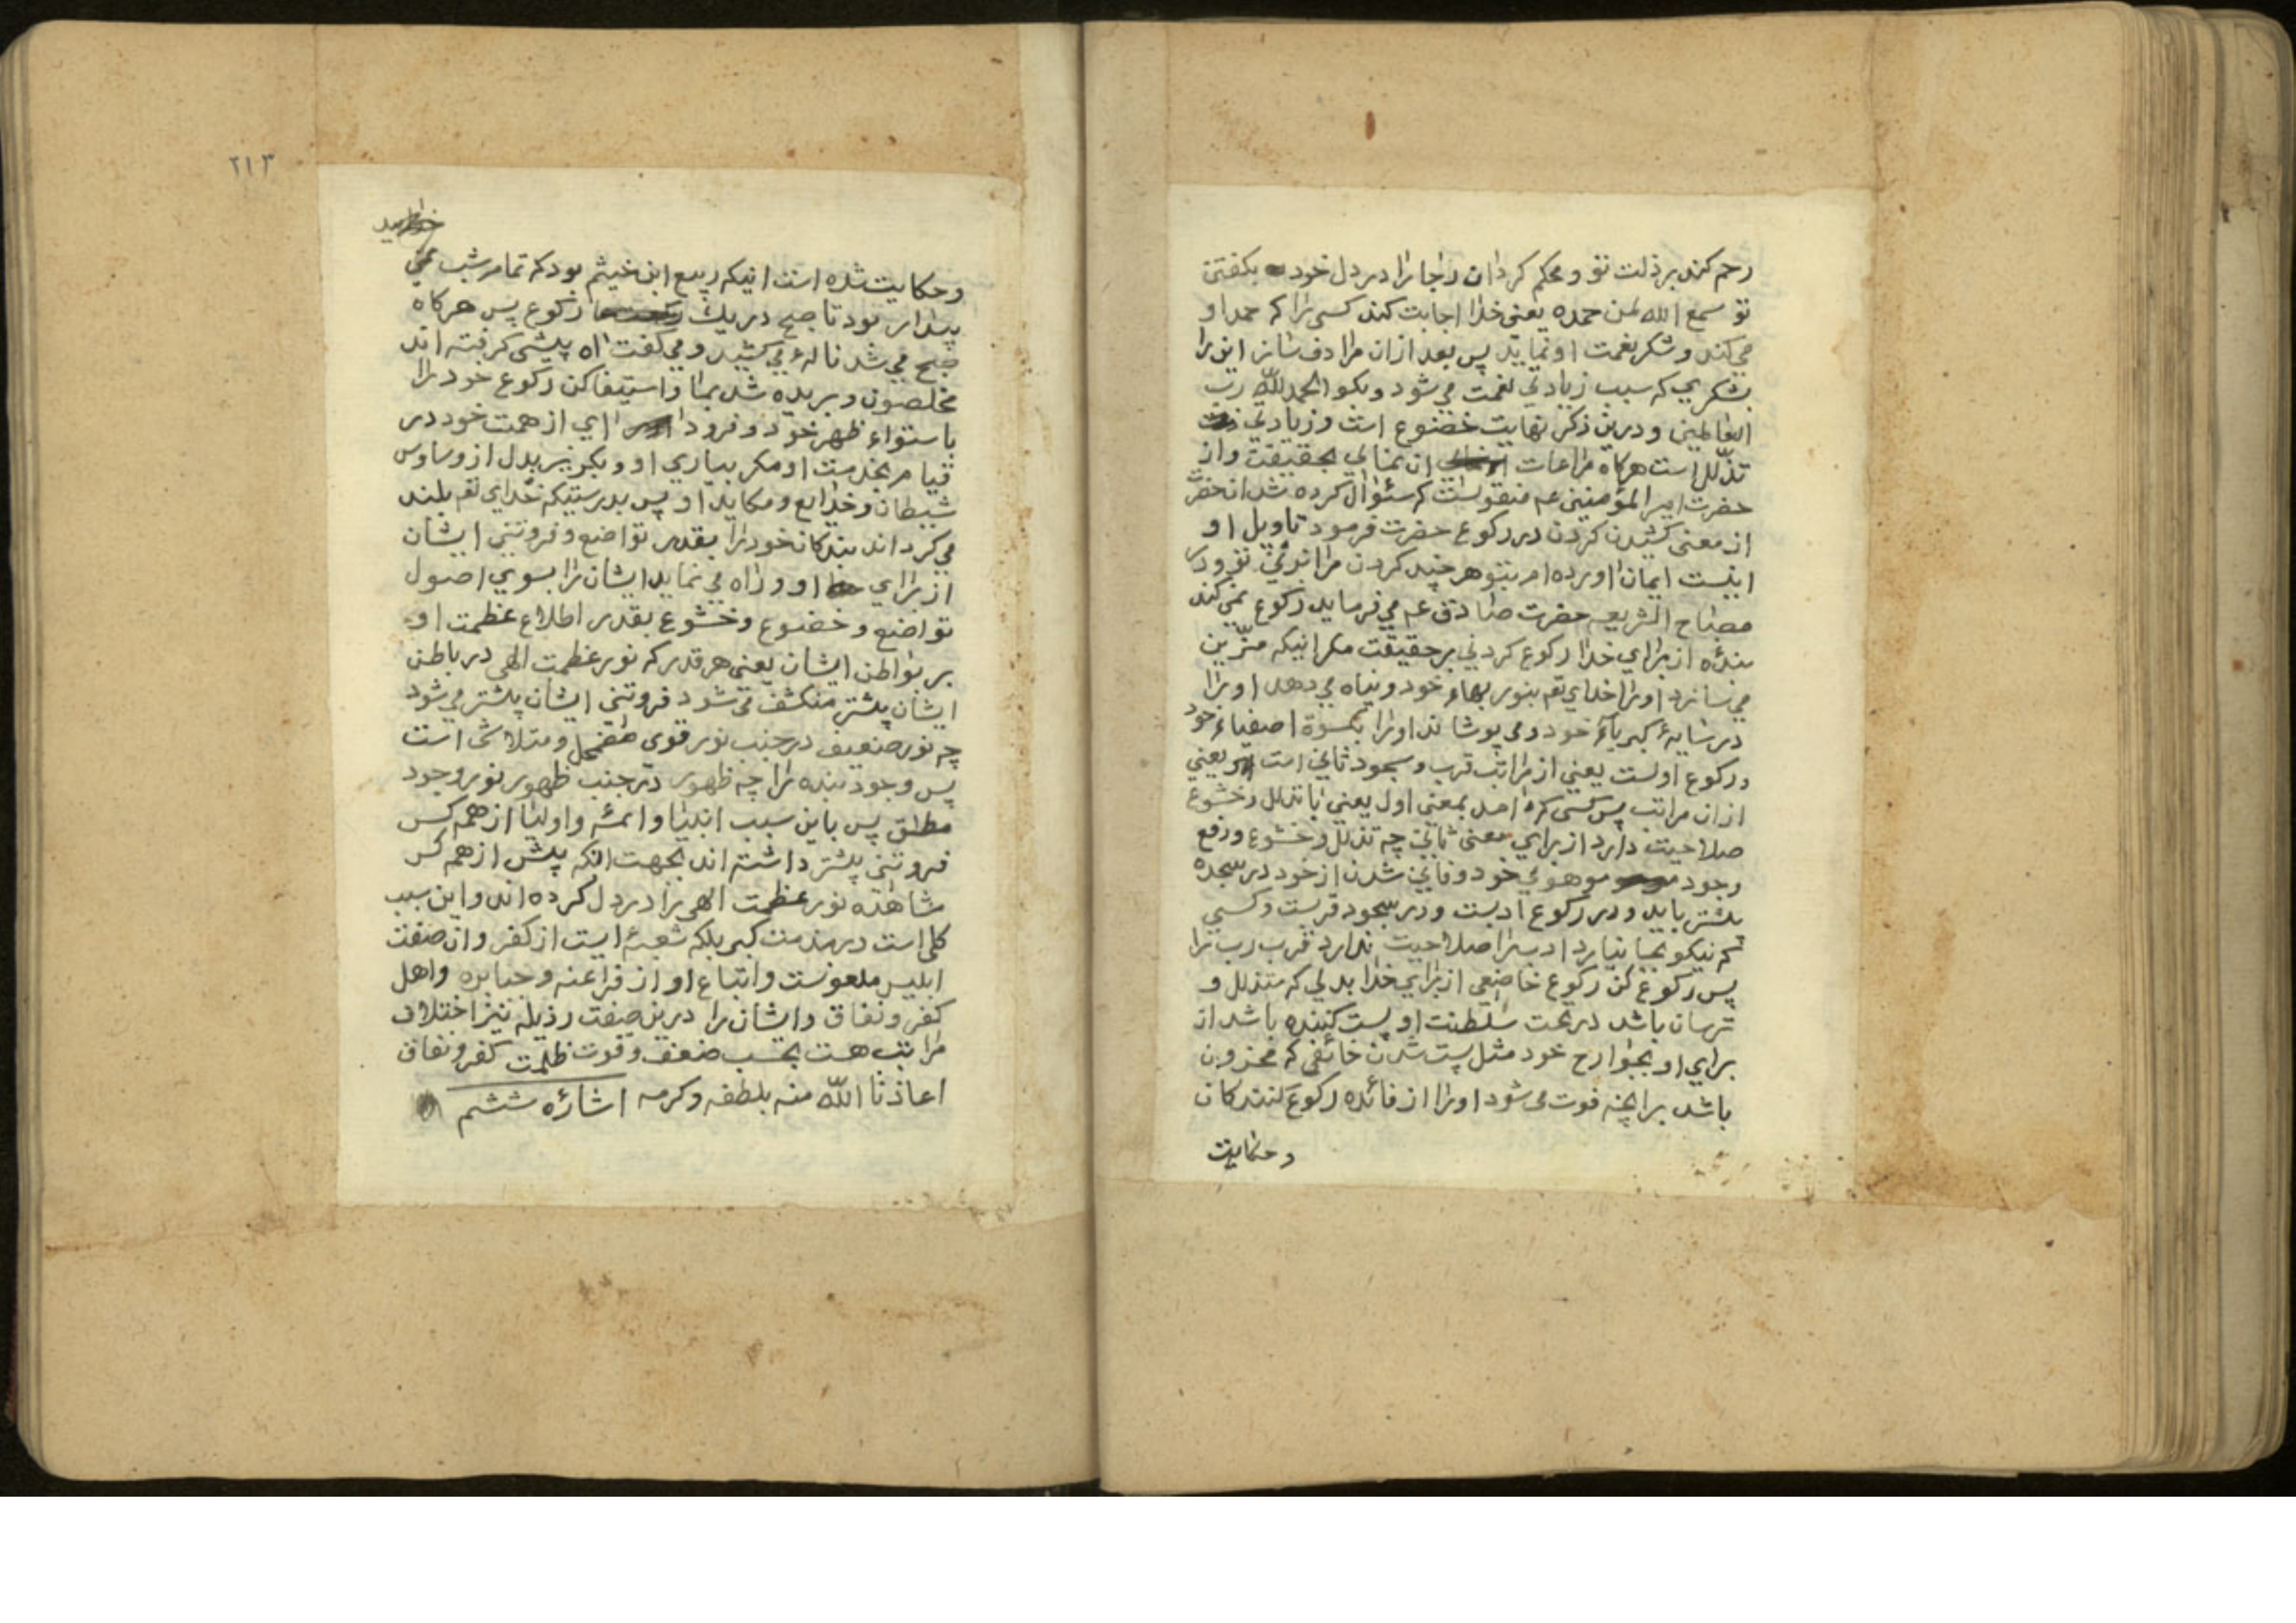 رحم کند بر ذلت تو و محکم کردان رجا را در دل خود بکفتن
تو سمع الله لمن حمده یعنی خدا اجابت کند کسی را که حمد او
می کند و شکر نعمت او نماید پس بعد ازان مرادف ساز این را
بشکری که سبب زیادتی نعمت می شود و بکو الحمد لله رب
العالمین و درین ذکر نهایت خضوع است و زیادتی
تذلل است هرکاه مراعات ان نمائی بحقیقت و از
حضرت امیر المؤمنین عم منقولست که سئوال کرده شد انحضرت
از معنی کشیدن کردن در رکوع حضرت فرمود تاویل او
اینست ایمان اورده ام بتو هرچند کردن مرا بزنی و در
مصباح الشریعه حضرت صادق عم می فرماید رکوع نمی کند
بندۀ از برای خدا رکوع کردنی بر حقیقت مکر اینکه مزین
می سازد او را خدای تعم بنور بهاء خود و پناه می دهد او را
در سایۀ کبریاء خود و می پوشاند او را بکسوة اصفیاء خود
و رکوع اولست یعنی از مراتب قرب و سجود ثانی است یعنی
ازان مراتب پس کسی که امد بمعنی اول یعنی با تذلل و خشوع
صلاحیت دارد از برای معنی ثانی چه تذلل و خشوع و رفع
وجود موهومی خود و فانی شدن از خود در سجده
بیشتر باید و در رکوع ادبست و در سجود قربست و کسی
که نیکو بجا نیارد ادب را صلاحیت ندارد قرب رب را
پس رکوع کن رکوع خاضعی از برای خدا بدلی که متذلل و
ترسان باشد در تحت سلطنت او پست کننده باشد از
برای او بجوارح خود مثل پست شدن خائفی که محزون
باشد برانچه فوت می شود او را از فائده رکوع کنندکان
و حکایت
٢١٣
و حکایت شده است اینکه ربیع ابن خیثم بود که تمام شب می
بیدار بود تا صبح در یک رکوع پس هرکاه
صبح می شد نالۀ می کشید و می کفت اه پیشی کرفته اند
مخلصون و بریده شد بما و استیفا کن رکوع خود را
باستواء ظهر خود و فرود ای از همت خود در
قیام بخدمت او مکر بیاری او و بکریز بدل از وساوس
شیطان و خدایع و مکاید او پس بدرستیکه خدای تعم بلند
می کرداند بندکان خود را بقدر تواضع و فروتنی ایشان
از برای او و راه می نماید ایشان را بسوی اصول
تواضع و خضوع و خشوع بقدر اطلاع عظمت او
بر بواطن ایشان یعنی هر قدر که نور عظمت الهی در باطن
ایشان بیشتر منکشف می شود فروتنی ایشان بیشتر می شود
چه نور ضعیف در جنب نور قوی مضمحل و متلاشی است
پس وجود بنده را چه ظهور در جنب ظهور نور وجود
مطلق پس باین سبب انبیا و ائمه و اولیا از همه کس
فروتنی بیشتر داشته اند بجهت انکه پیش از همه کس
مشاهده نور عظمت الهی را در دل کرده اند و این سبب
کلی است در مذمت کبر بلکه شعبۀ ایست از کفر و ان صفت
ابلیس ملعونست و اتباع او از فراعنه و جبابره و اهل
کفر و نفاق و ایشان را درین صفت رذیله نیز اختلاف
مراتب هست بحسب ضعف و قوت ظلمت کفر و نفاق
اعاذنا الله منه بلطفه و کرمه اشارۀ ششم